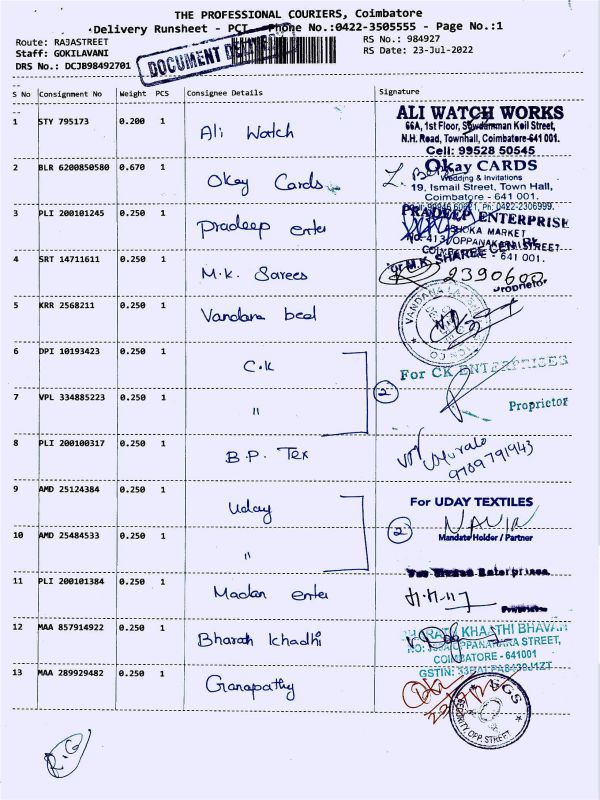 THE PROFESSIONAL COURIERS, Coimbatore
Delivery Runsheet - PCT - Phone No.:0422-3505555 - Page No.:1
Route: RAJASTREET RS No.: 984927
Staff: GOKILAVANI RS Date: 23-Jul-2022
DRS No.: DCJB98492701
DOCUMENT
S No Consignment No Weight PCS Consignee Details Signature
1 STY 795173 0.200 1 Ali Watch
ALI WATCH WORKS
66A, 1st Floor, Street,
N.H. Road, Townhall, Coimbatore-641 001.
Cell: 99528 50545
2 BLR 6200850580 0.670 1 Okay Cards
Okay CARDS
Wedding & Invitations
19, Ismail Street, Town Hall,
Coimbatore - 641 001.
Ph: 0422-2306999.
3 PLI 200101245 0.250 1 Pradeep enter
PRADEEP ENTERPRISE
MARKET
STREET
641 001.
4 SRT 14711611 0.250 1 M.K. Sarees
2390600
Proprietor
5 KRR 2568211 0.250 1 Vandana bed
VANDANA
6 DPI 10193423 0.250 1 C.K
For CK ENTERPRISES
2
7 VPL 334885223 0.250 1 "
Proprietor
8 PLI 200100317 0.250 1 B.P. Tex
9789791943
9 AMD 25124384 0.250 1 Uday
For UDAY TEXTILES
2
10 AMD 25484533 0.250 1 "
Mandate Holder / Partner
11 PLI 200101384 0.250 1 Madan enter
12 MAA 857914922 0.250 1 Bharath Khadhi
KHAATHI BHAVAN
STREET,
COIMBATORE - 641001
GSTIN:
13 MAA 289929482 0.250 1 Ganapathy
SGS
SECURITY, OPP. STREET